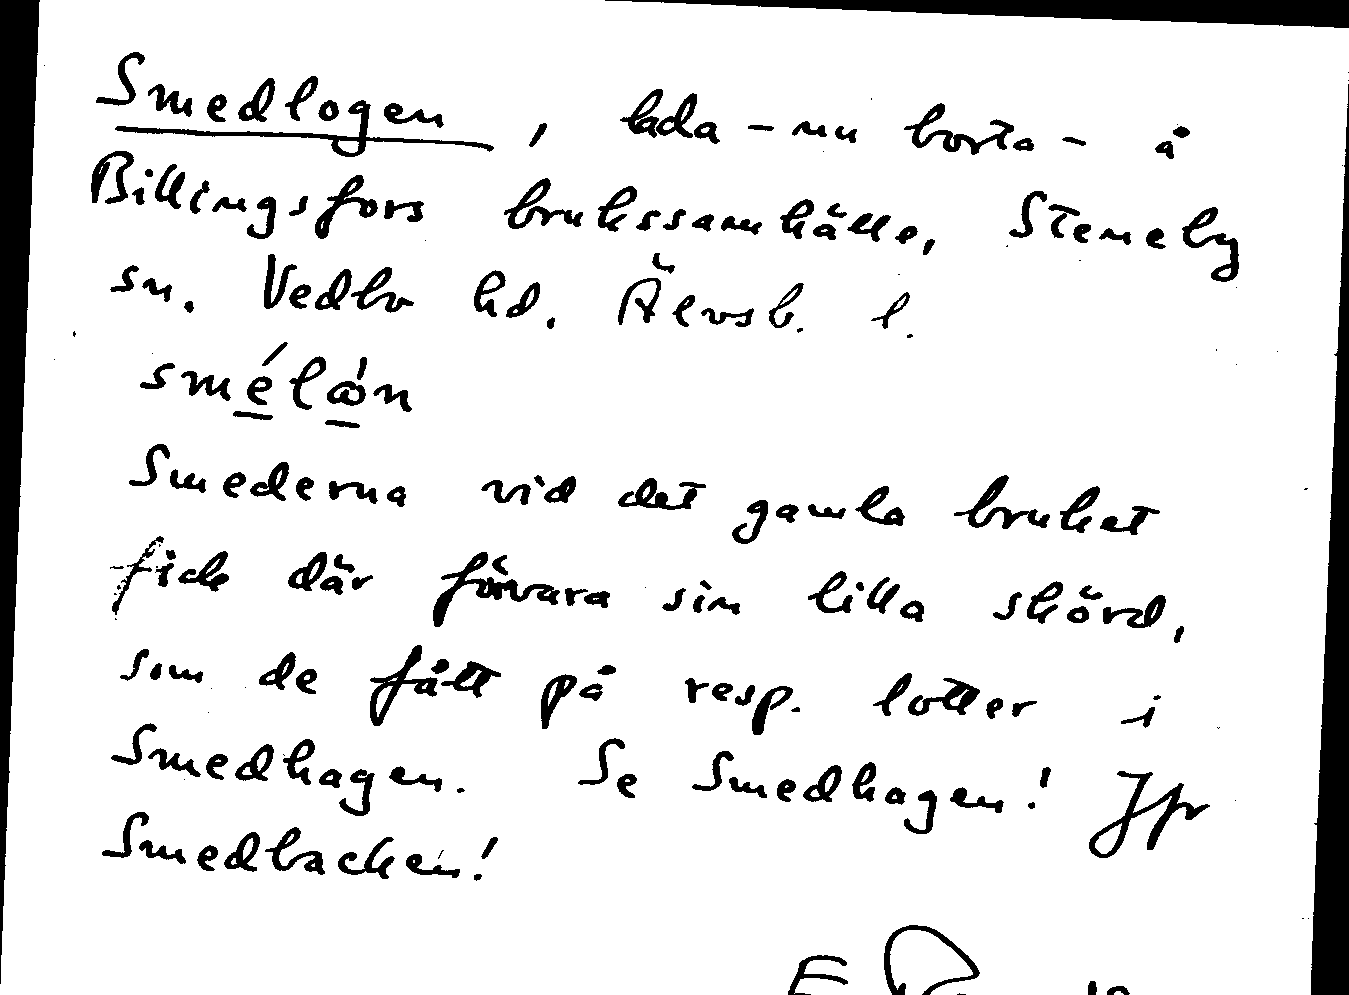 Smedlogen, lada - nu borta - å
Billingsfors brukssamhälle, Steneby
sn. Vedbo hd. Älvsb. l.
smélǻn
Smederna vid det gamla bruket
fick där förvara sin lilla skörd,
som de fått på resp. lotter i
Smedhagen. Se Smedhagen! Jfr
Smedbacken!